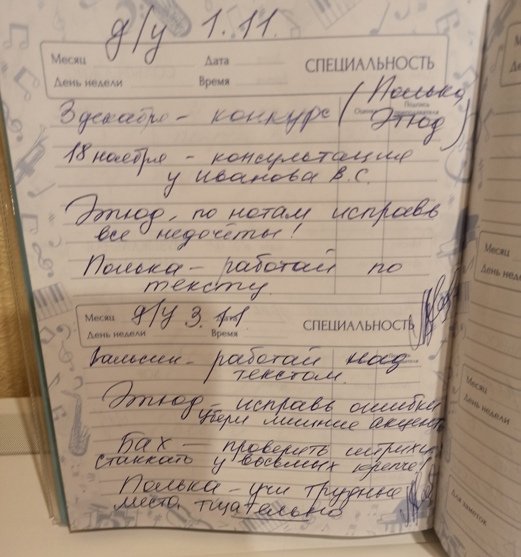 д/у 1.11.
Месяц Дата СПЕЦИАЛЬНОСТЬ
День недели Время
Подпись
3 декабря - конкурс (Полька,
Этюд)
18 ноября - консультация
у Иванова В.С.
Этюд, по нотам исправь
все недочёты!
Полька - работай по
тексту.
Месяц д/у 3.11. Дата СПЕЦИАЛЬНОСТЬ
День недели Время
работай над
текстом.
Этюд - исправь ошибки
убери лишние акценты
Бах - проверить штрихи,
стаккато у восьмых крепче!
Полька - учи трудные
места тщательно
Месяц
День нед
Месяц
День недели
Для заметок